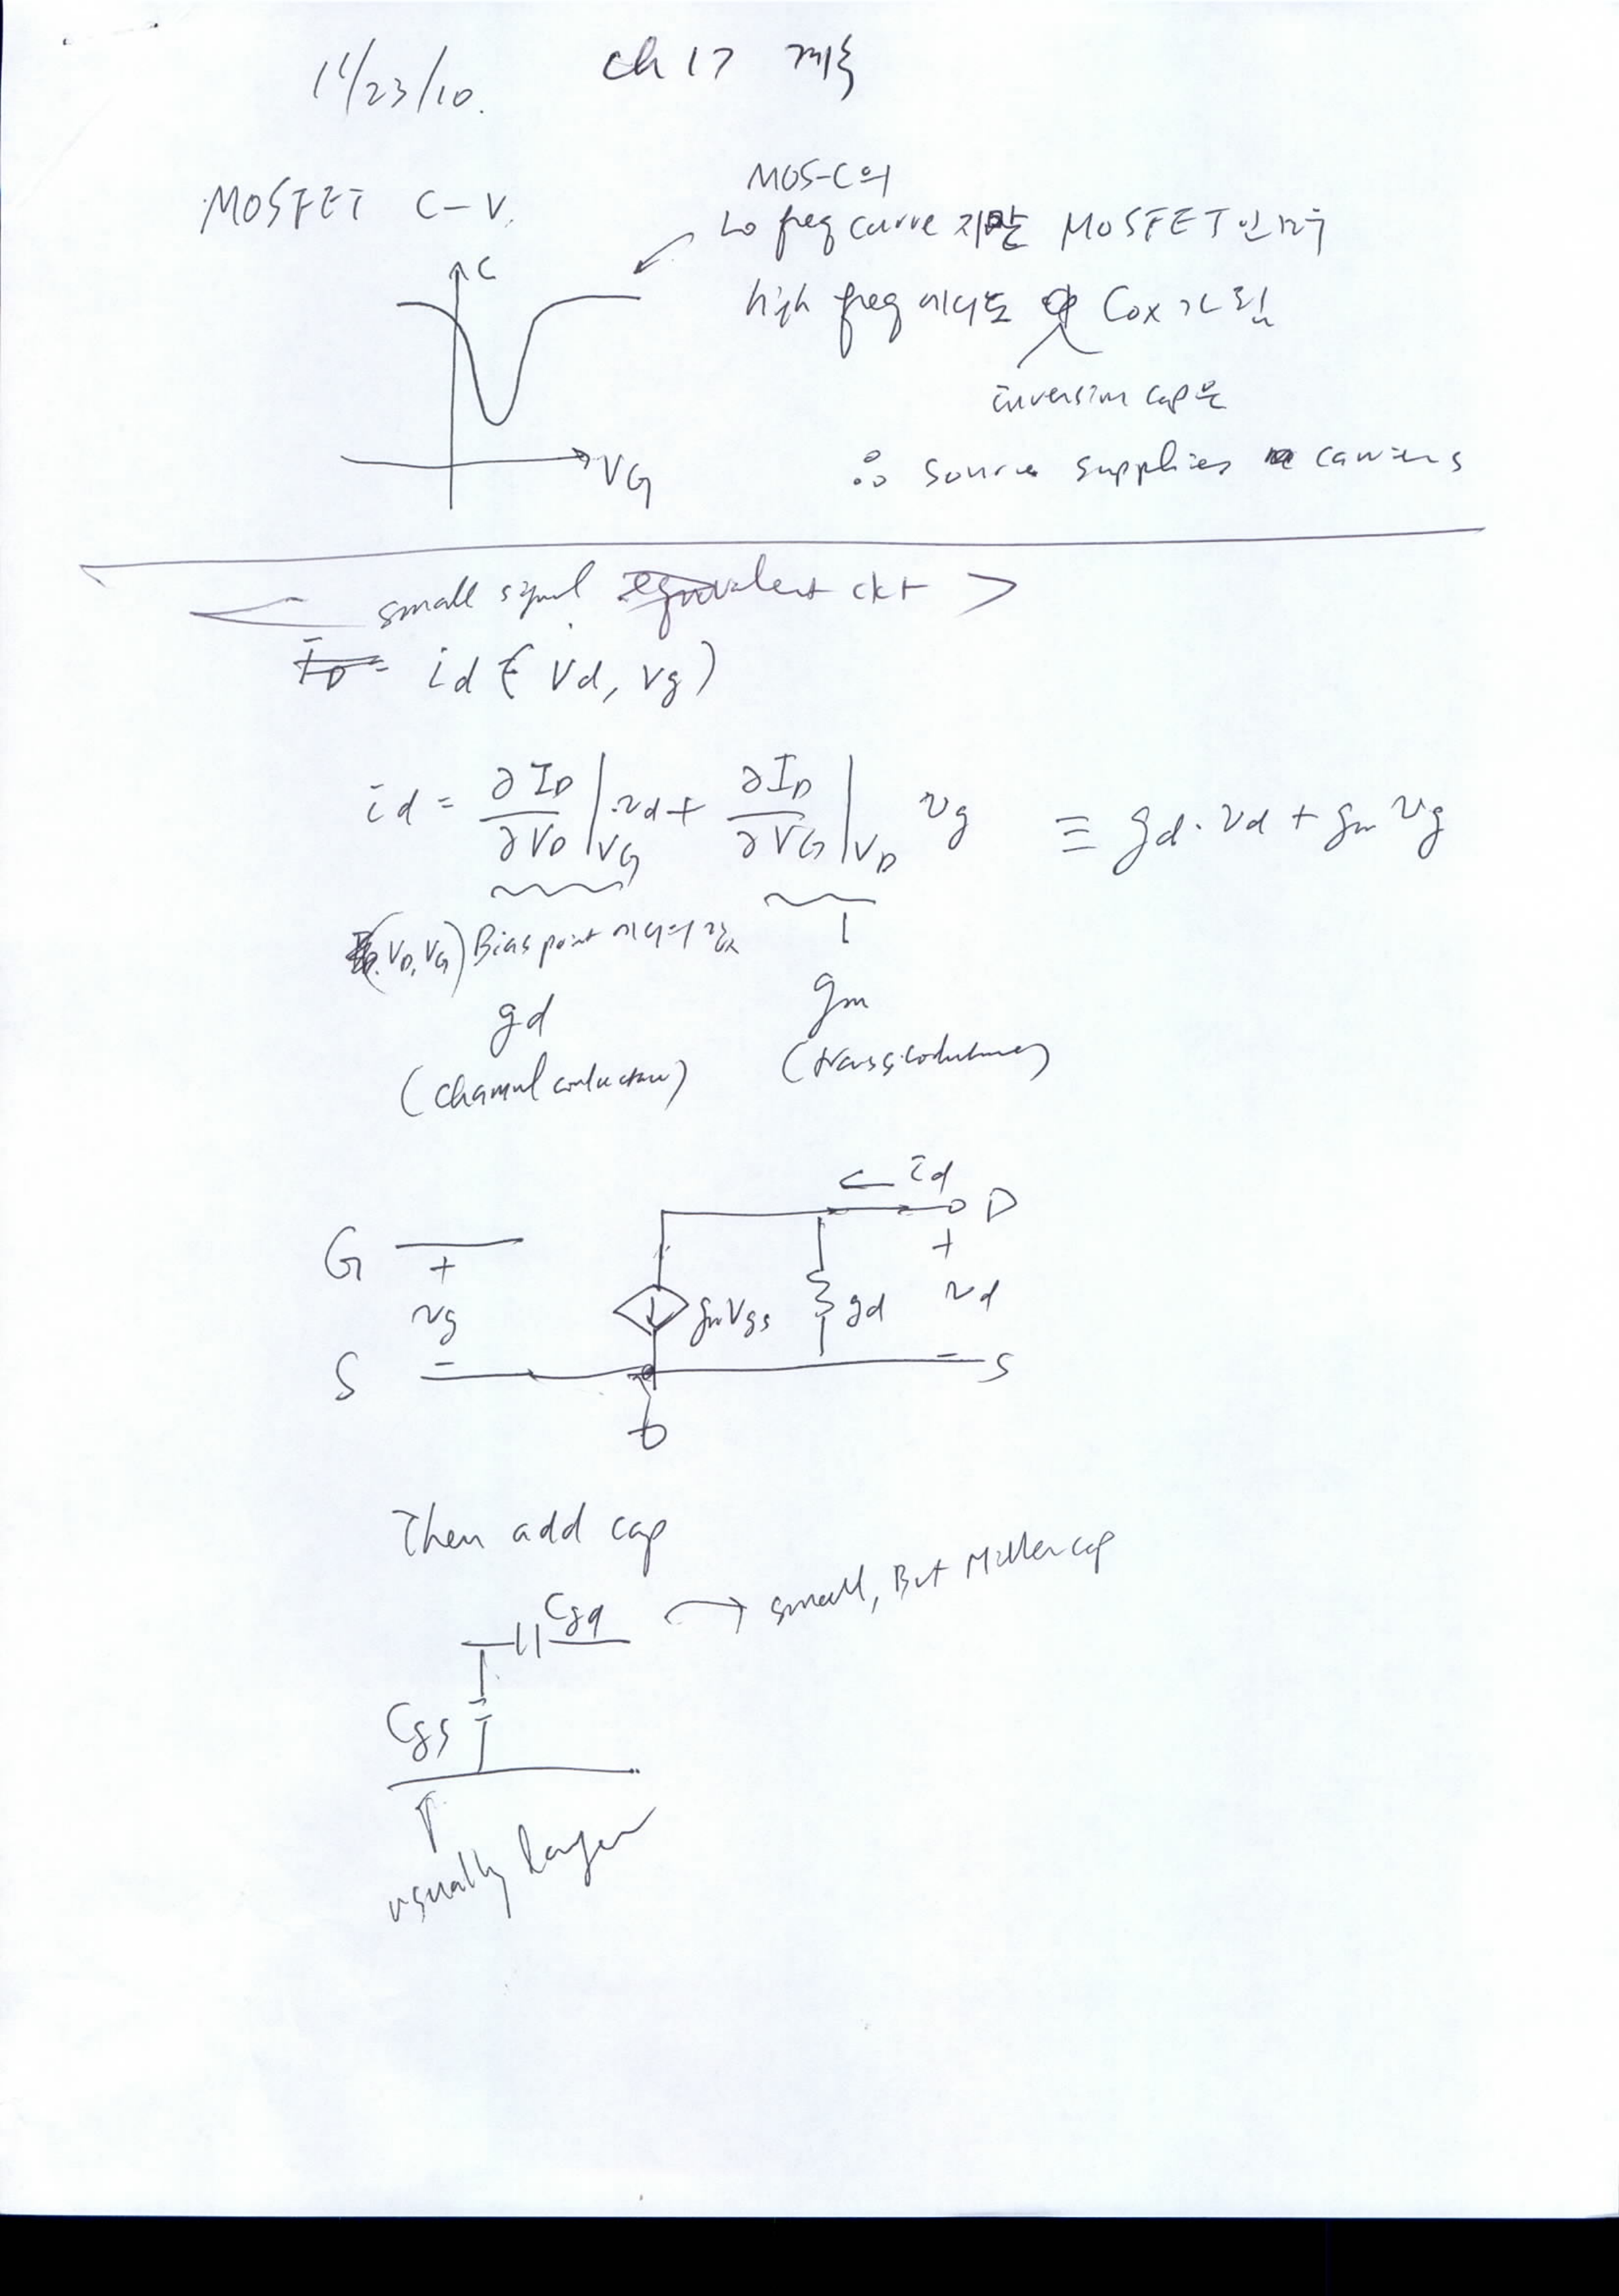 11/23/10. ch 17 계속
MOSFET C-V.
MOS-C의
Lo freq curve 지만 MOSFET인 경우
high freq 에서도 Cox 가 됨
inversion cap은
∴ source supplies carriers
C
VG
< small signal equivalent ckt >
id (Vd, Vg)
id = ∂ID/∂VD |VG · vd + ∂ID/∂VG |VD vg ≡ gd · vd + gm vg
(VD, VG) Bias point 에서의 값
gd gm
(channel conductance) (transconductance)
id
G D
+ +
vg gmVgs gd vd
- -
S S
Then add cap
Cgd → small, But Miller cap
Cgs
usually larger